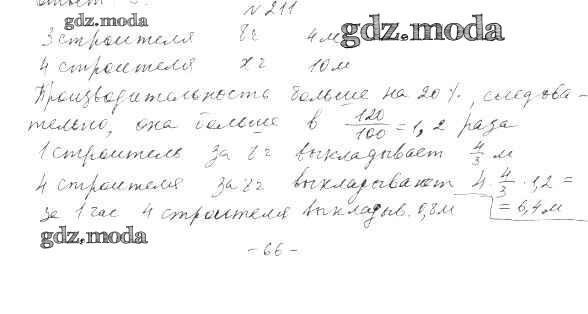 № 211
gdz.moda
3 строителя 8 ч 4 м
gdz.moda
4 строителя x ч 10 м
Производительность больше на 20%, следова-
тельно, она больше в 120/100 = 1,2 раза
1 строитель за 8 ч выкладывает 4/3 м
4 строителя за 8 ч выкладывают 4 · 4/3 · 1,2 =
= 6,4 м
за 1 час 4 строителя выкладыв. 0,8 м
gdz.moda
- 66 -